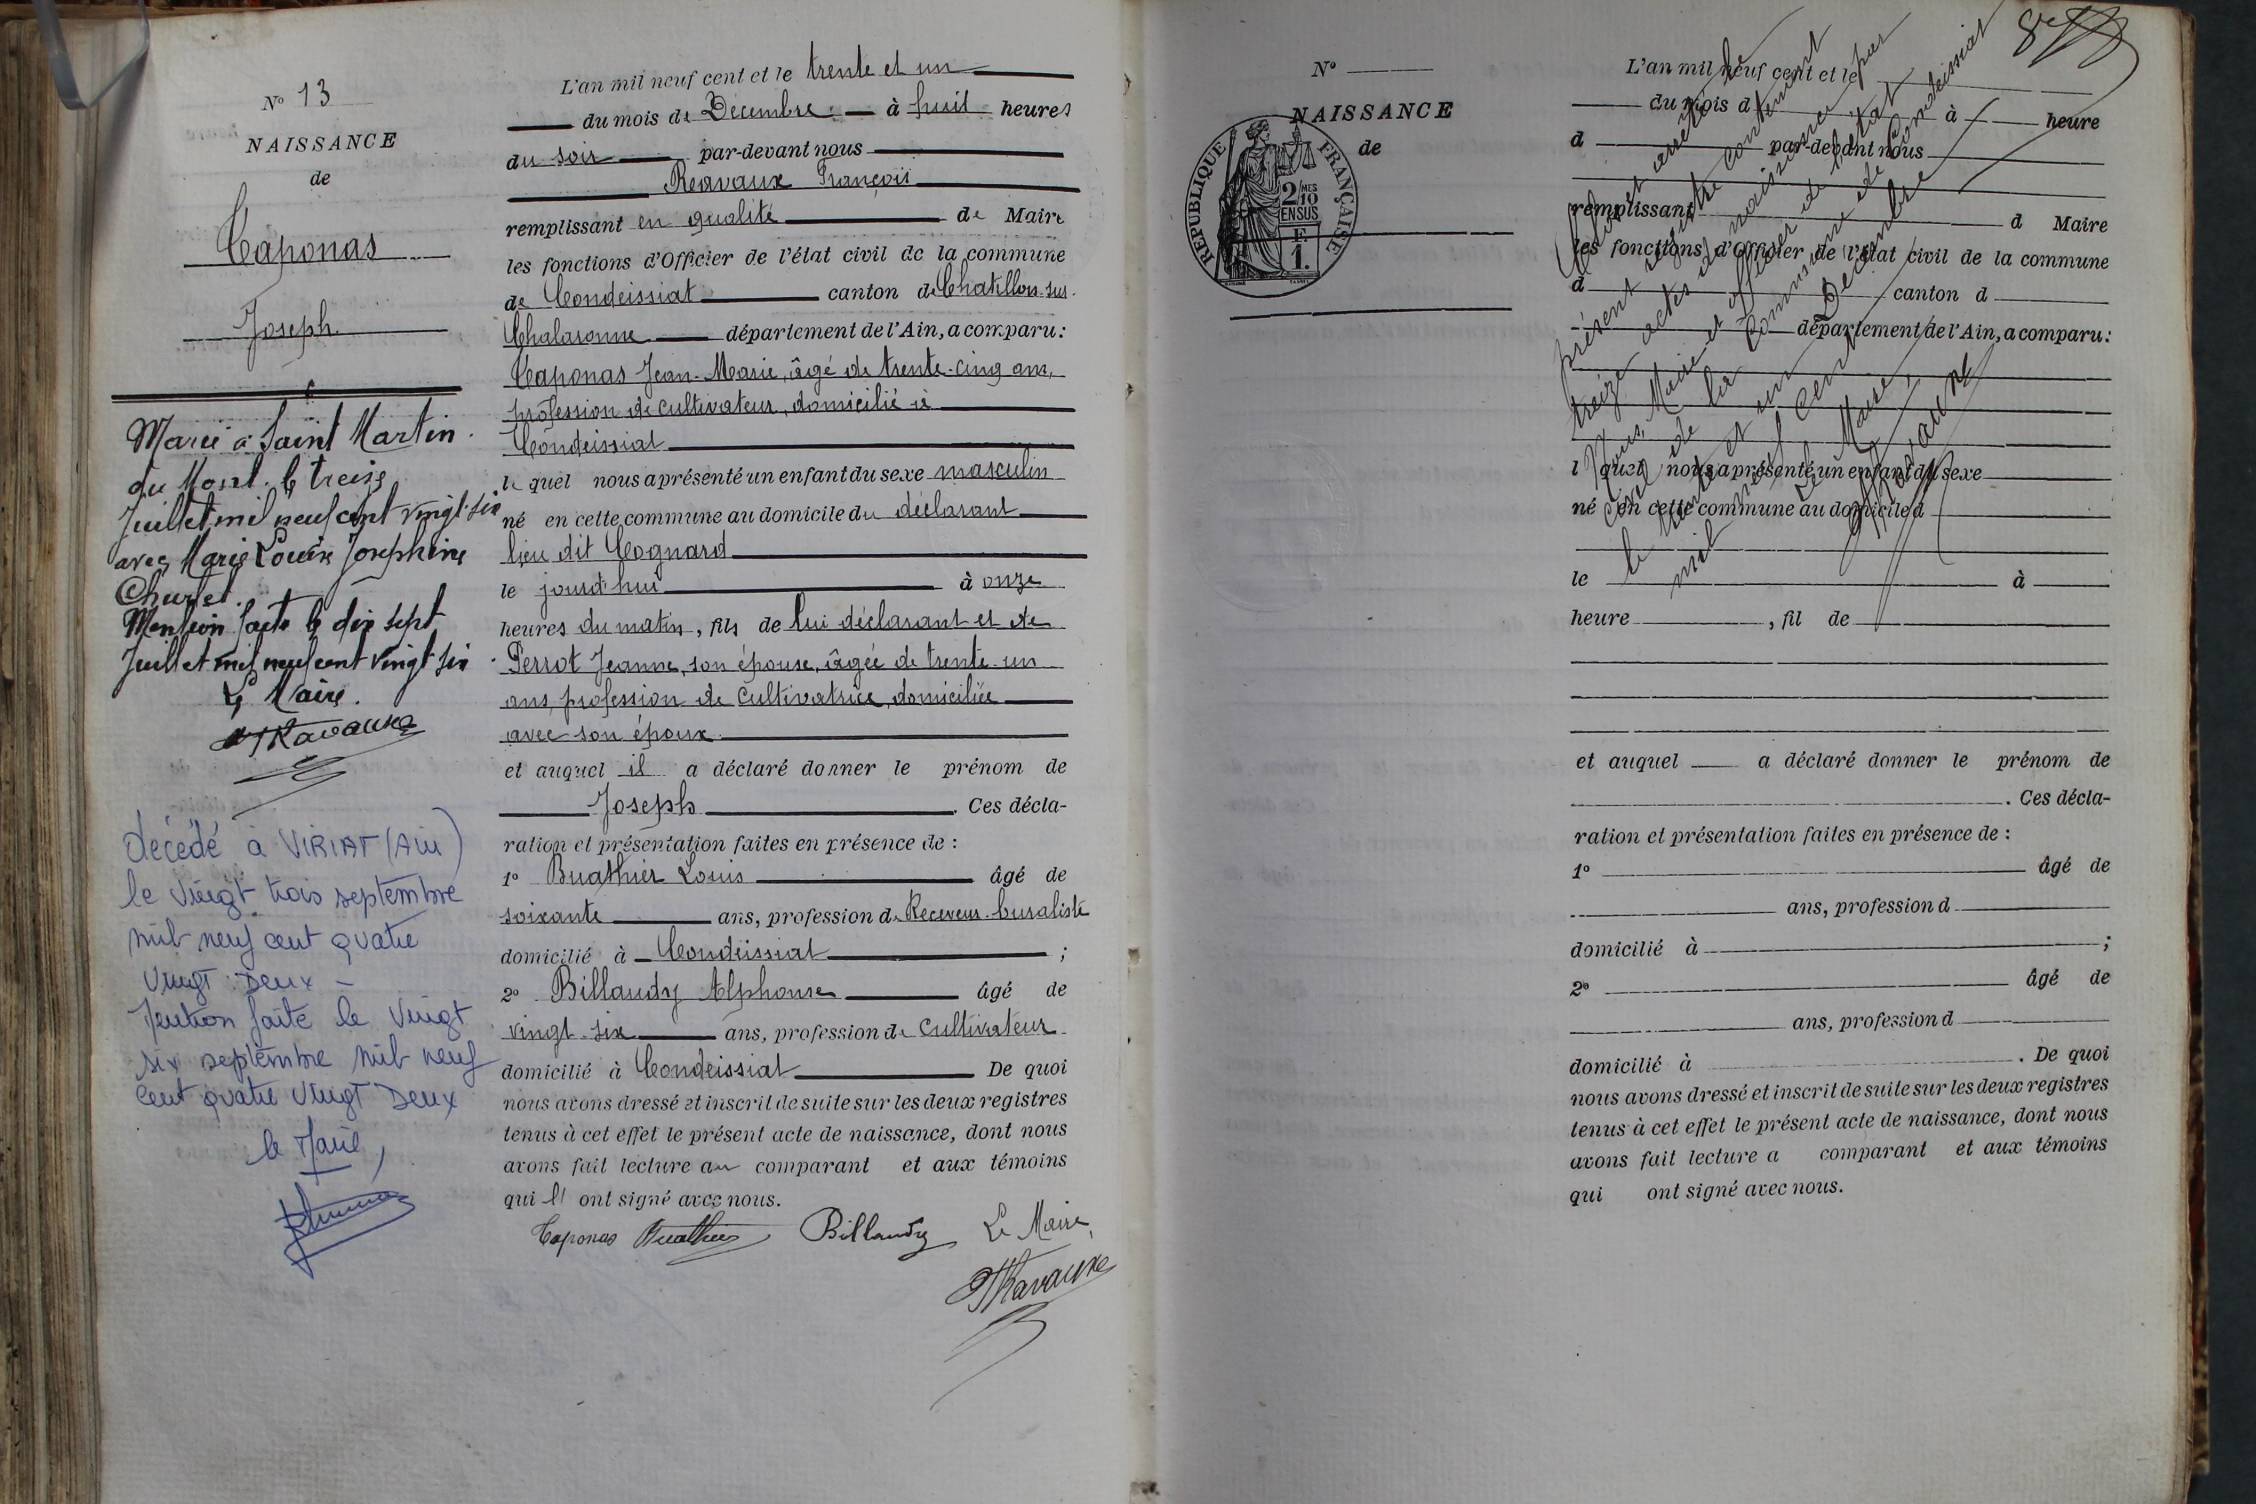 N° 13
NAISSANCE
de
Caponas
Joseph
Marié à Saint Martin
du Mont le treize
Juillet mil neuf cent vingt six
avec Marie Louise Josephine
Churlet.
Mention faite le dix sept
Juillet mil neuf cent vingt six
Le Maire.
décédé à VIRIAT (Ain)
le vingt trois septembre
mil neuf cent quatre
vingt Deux -
Mention faite le vingt
six septembre mil neuf
cent quatre vingt Deux
le Maire,
L'an mil neuf cent et le trente et un
du mois de Décembre à huit heures
du soir par-devant nous
Ravaux François
remplissant en qualité de Maire
les fonctions d'Officier de l'état civil de la commune
de Condeissiat canton de Chatillon-sur-
Chalaronne département de l'Ain, a comparu :
Caponas Jean-Marie, âgé de trente-cinq ans,
profession de cultivateur, domicilié à
Condeissiat
le quel nous a présenté un enfant du sexe masculin
né en cette commune au domicile du déclarant
lieu dit Cognard
le jourd'hui à onze
heures du matin, fils de lui déclarant et de
Perrot Jeanne, son épouse, âgée de trente-un
ans, profession de cultivatrice, domiciliée
avec son époux
et auquel il a déclaré donner le prénom de
Joseph. Ces décla-
ration et présentation faites en présence de :
1° Buathier Louis âgé de
soixante ans, profession de Receveur-buraliste
domicilié à Condeissiat ;
2° Billaudy Alphonse âgé de
vingt-six ans, profession de cultivateur
domicilié à Condeissiat De quoi
nous avons dressé et inscrit de suite sur les deux registres
tenus à cet effet le présent acte de naissance, dont nous
avons fait lecture au comparant et aux témoins
qui l' ont signé avec nous.
Caponas Buathier Billaudy Le Maire,
Ravaux
N°
NAISSANCE
de
REPUBLIQUE FRANÇAISE
2/10 MES
EN SUS
F.
1.
L'an mil neuf cent et le
du mois d à heure
d par-devant nous
remplissant d Maire
les fonctions d'Officier de l'état civil de la commune
d canton d
département de l'Ain, a comparu :
l quel nous a présenté un enfant du sexe
né en cette commune au domicile d
le à
heure , fil de
et auquel a déclaré donner le prénom de
. Ces décla-
ration et présentation faites en présence de :
1° âgé de
ans, profession d
domicilié à ;
2° âgé de
ans, profession d
domicilié à . De quoi
nous avons dressé et inscrit de suite sur les deux registres
tenus à cet effet le présent acte de naissance, dont nous
avons fait lecture a comparant et aux témoins
qui ont signé avec nous.
Clos et arrêté le
présent registre contenant
treize actes de naissance par
Nous, Maire et officier de l'état
civil de la Commune de Condeissiat
le trente et un Décembre
mil neuf cent
Le Maire,
Ravaux